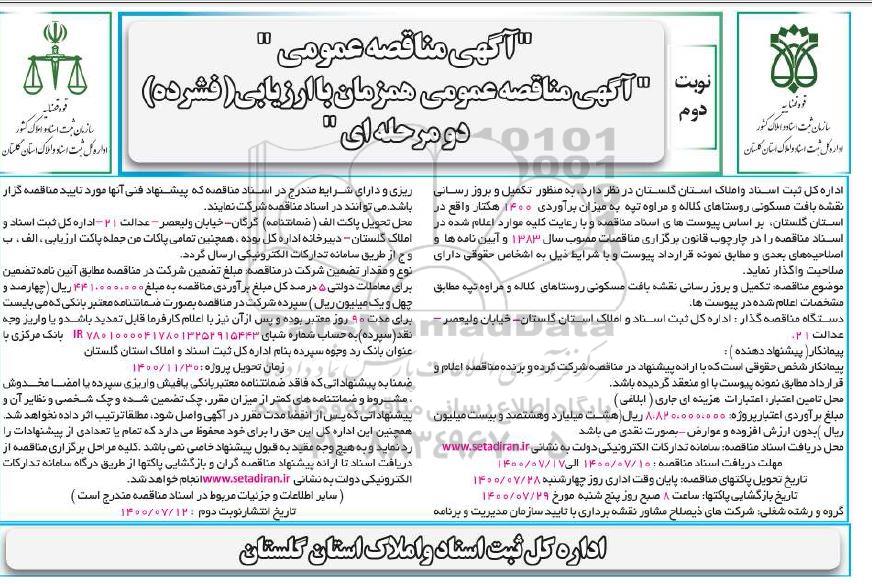 "آگهی مناقصه عمومی"
"آگهی مناقصه عمومی همزمان با ارزیابی( فشرده)
دو مرحله ای"
نوبت
دوم
قوه قضاییه
سازمان ثبت اسناد و املاک کشور
اداره کل ثبت اسناد و املاک استان گلستان
قوه قضاییه
سازمان ثبت اسناد و املاک کشور
اداره کل ثبت اسناد و املاک استان گلستان
اداره کل ثبت اسناد واملاک استان گلستان در نظر دارد، به منظور تکمیل و بروز رسانی
نقشه بافت مسکونی روستاهای کلاله و مراوه تپه به میزان برآوردی ۱۴۰۰ هکتار واقع در
استان گلستان، بر اساس پیوست ها ی اسناد مناقصه و با رعایت کلیه موارد اعلام شده در
اسناد مناقصه را در چارچوب قانون برگزاری مناقصات مصوب سال ۱۳۸۳ و آیین نامه ها و
اصلاحیه‌های بعدی و مطابق نمونه قرارداد پیوست و با شرایط ذیل به اشخاص حقوقی دارای
صلاحیت واگذار نماید.
موضوع مناقصه: تکمیل و بروز رسانی نقشه بافت مسکونی روستاهای کلاله و مراوه تپه مطابق
مشخصات اعلام شده در پیوست ها.
دستگاه مناقصه گذار : اداره کل ثبت اسناد و املاک استان گلستان– خیابان ولیعصر –
عدالت ۲۱.
پیمانکار( پیشنهاد دهنده ) :
پیمانکار شخص حقوقی است که با ارائه پیشنهاد در مناقصه شرکت کرده و برنده مناقصه اعلام و
قرارداد مطابق نمونه پیوست با او منعقد گردیده باشد.
محل تامین اعتبار: اعتبارات هزینه ای جاری ( ابلاغی )
مبلغ برآوردی اعتبار پروژه: ۸.۸۲۰.۰۰۰.۰۰۰ ریال(هشت میلیارد وهشتصد و بیست میلیون
ریال )بدون ارزش افزوده و عوارض –بصورت نقدی می باشد
محل دریافت اسناد مناقصه: سامانه تدارکات الکترونیکی دولت به نشانی www.setadiran.ir
مهلت دریافت اسناد مناقصه : ۱۴۰۰/۰۷/۱۰ الی۱۴۰۰/۰۷/۱۷
تاریخ تحویل پاکتهای مناقصه: پایان وقت اداری روز چهارشنبه ۱۴۰۰/۰۷/۲۸
تاریخ بازگشایی پاکتها: ساعت ۸ صبح روز پنج شنبه مورخ ۱۴۰۰/۰۷/۲۹
گروه و رشته شغلی: شرکت های ذیصلاح مشاور نقشه برداری با تایید سازمان مدیریت و برنامه
ریزی و دارای شرایط مندرج در اسناد مناقصه که پیشنهاد فنی آنها مورد تایید مناقصه گزار
باشد،می توانند در اسناد مناقصه شرکت نمایند.
محل تحویل پاکت الف ( ضمانتنامه) گرگان– خیابان ولیعصر– عدالت ۲۱-اداره کل ثبت اسناد و
املاک گلستان– دبیرخانه اداره کل بوده ، همچنین تمامی پاکات من جمله پاکت ارزیابی ، الف ، ب
و ج از طریق سامانه تدارکات الکترونیکی ارسال گردد.
نوع و مقدار تضمین شرکت در مناقصه: مبلغ تضمین شرکت در مناقصه مطابق آئین نامه تضمین
برای معاملات دولتی ۵ درصد کل مبلغ برآوردی مناقصه به مبلغ ۴۴۱.۰۰۰.۰۰۰ ریال (چهارصد و
چهل و یک میلیون ریال ) سپرده شرکت در مناقصه بصورت ضمانتنامه معتبر بانکی که می بایست
برای مدت ۹۰ روز معتبر بوده و پس ازآن نیز با اعلام کارفرما قابل تمدید باشد و یا واریز وجه
نقد(سپرده)به حساب شماره شبای IR ۷۸۰۱۰۰۰۰۴۱۷۸۰۱۳۲۵۲۹۱۵۴۴۳ بانک مرکزی با
عنوان بانک رد وجوه سپرده بنام اداره کل ثبت اسناد و املاک استان گلستان
زمان تحویل پروژه :۱۴۰۰/۱۱/۳۰
ضمنا به پیشنهاداتی که فاقد ضمانتنامه معتبر بانکی یا فیش واریزی سپرده یا امضا مخدوش
، مشروط و ضمانتنامه های کمتر از میزان مقرر، چک تضمین شده و چک شخصی و نظایر آن و
پیشنهاداتی که پس از انقضا مدت مقرر در آگهی واصل شود، مطلقا ترتیب اثر داده نخواهد شد.
همچنین این اداره کل این حق را برای خود محفوظ می دارد که تمام یا تعدادی از پیشنهادات را
رد نماید و به هیچ وجه مقید به قبول پیشنهاد خاصی نمی باشد .کلیه مراحل برگزاری مناقصه از
دریافت اسناد تا ارائه پیشنهاد مناقصه گران و بازگشایی پاکتها از طریق درگاه سامانه تدارکات
الکترونیکی دولت به نشانی www.setadiran.irانجام خواهد شد.
( سایر اطلاعات و جزئیات مربوط در اسناد مناقصه مندرج است )
تاریخ انتشارنوبت دوم : ۱۴۰۰/۰۷/۱۲
اداره کل ثبت اسناد واملاک استان گلستان